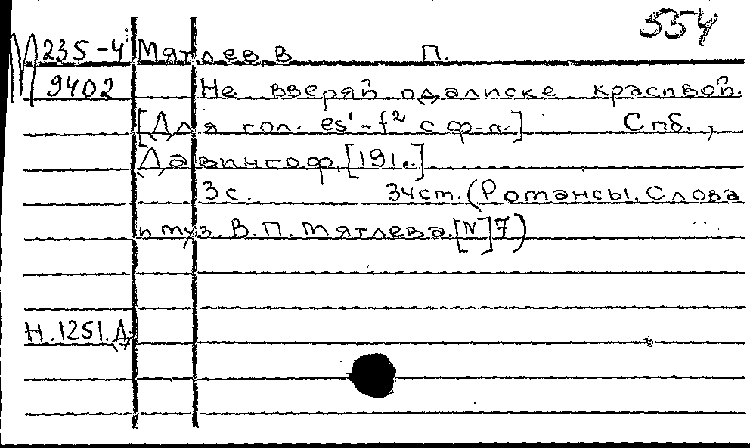 554
М 235-4 Мятлев, В. П.
9402 Не вверяй одалиске красивой.
[Для гол. es¹-f² с ф-п.] Спб.,
Давингоф, [191..]
3 с. 34 ст. (Романсы. Слова
и муз. В. П. Мятлева. [№] 7)
Н. 1251. Д.